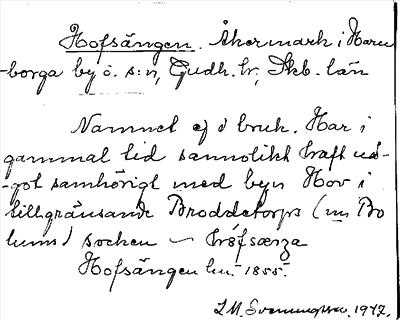 Hofsängen. Åkermark i Haru
-borga by o. s:n, Gudh. hr, Skb. län
Namnet ej i bruk. Har i
gammal tid sannolikt haft nå-
-got samhörigt med byn Hov i
tillgränsande Broddetorps (nu Bo
lums) socken — hofsænga
Hofsängen hu. 1855.
J. M. Svenungsson. 1947.